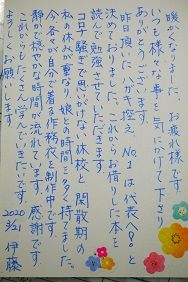 暖かくなりました。お疲れ様です。
いつも様々な事を気にかけて下さり
ありがとうございます。
昨日頂いたハガキ控え、No.1は代表へ8と
決めておりました。これからお借りした本を
読んで勉強させていただきます。
コロナ騒ぎで思いがけない休校と閑散期の
私の休みが重なり娘との時間を多く持てました。
今各々が自分で着る作務衣を制作中です。
静かで穏やかな時間が流れています。感謝です。
これからもたくさん学んでいきたいです。
よろしくお願いします。
2020
3/21 伊藤